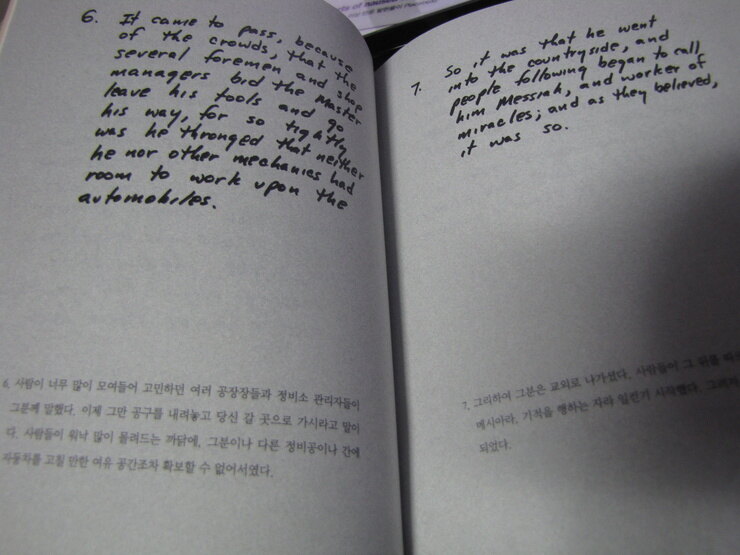 6. It came to pass, because
of the crowds, that the
several foremen and shop
managers bid the Master
leave his tools and go
his way, for so tightly
was he thronged that neither
he nor other mechanics had
room to work upon the
automobiles.
6. 사람이 너무 많이 모여들어 고민하던 여러 공장장들과 정비소 관리자들이
그분께 말했다. 이제 그만 공구를 내려놓고 당신 갈 곳으로 가시라고 말이
다. 사람들이 워낙 많이 몰려드는 까닭에, 그분이나 다른 정비공이나 간에
자동차를 고칠 만한 여유 공간조차 확보할 수 없어서였다.
7. So it was that he went
into the countryside, and
people following began to call
him Messiah, and worker of
miracles; and as they believed,
it was so.
7. 그리하여 그분은 교외로 나가셨다. 사람들이 그 뒤를
메시아라, 기적을 행하는 자라 일컫기 시작했다.
되었다.